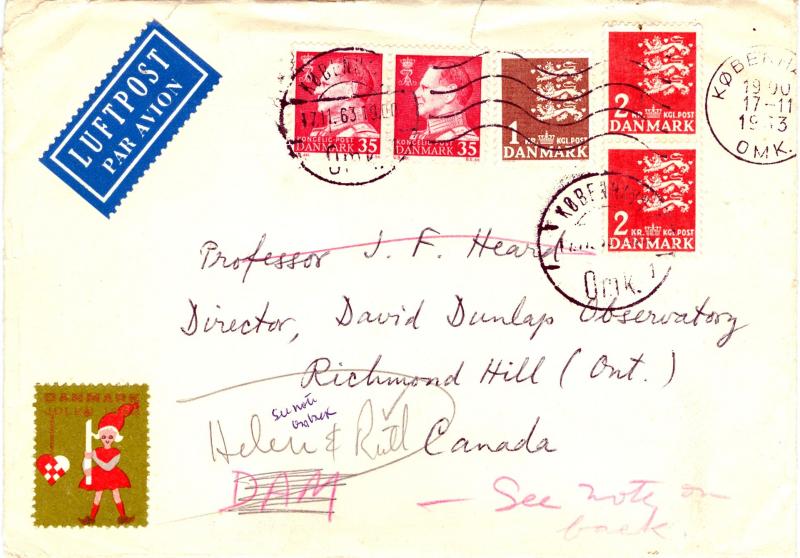 LUFTPOST
PAR AVION
KØBENH
17.11.63 19.00
KONGELIG POST
DANMARK 35
KONGELIG POST
DANMARK 35
1 KR. KGL.POST
DANMARK
2 KR. KGL.POST
DANMARK
KØBENHA
19.00
17-11
1963
OMK.
2 KR. KGL.POST
DANMARK
KØBENHAVN
OMK. 1
Professor J. F. Heard
Director, David Dunlap Observatory
Richmond Hill (Ont.)
Canada
See note
on back
Helen & Ruth
DAM
— See note on
back.
DANMARK
JULEN